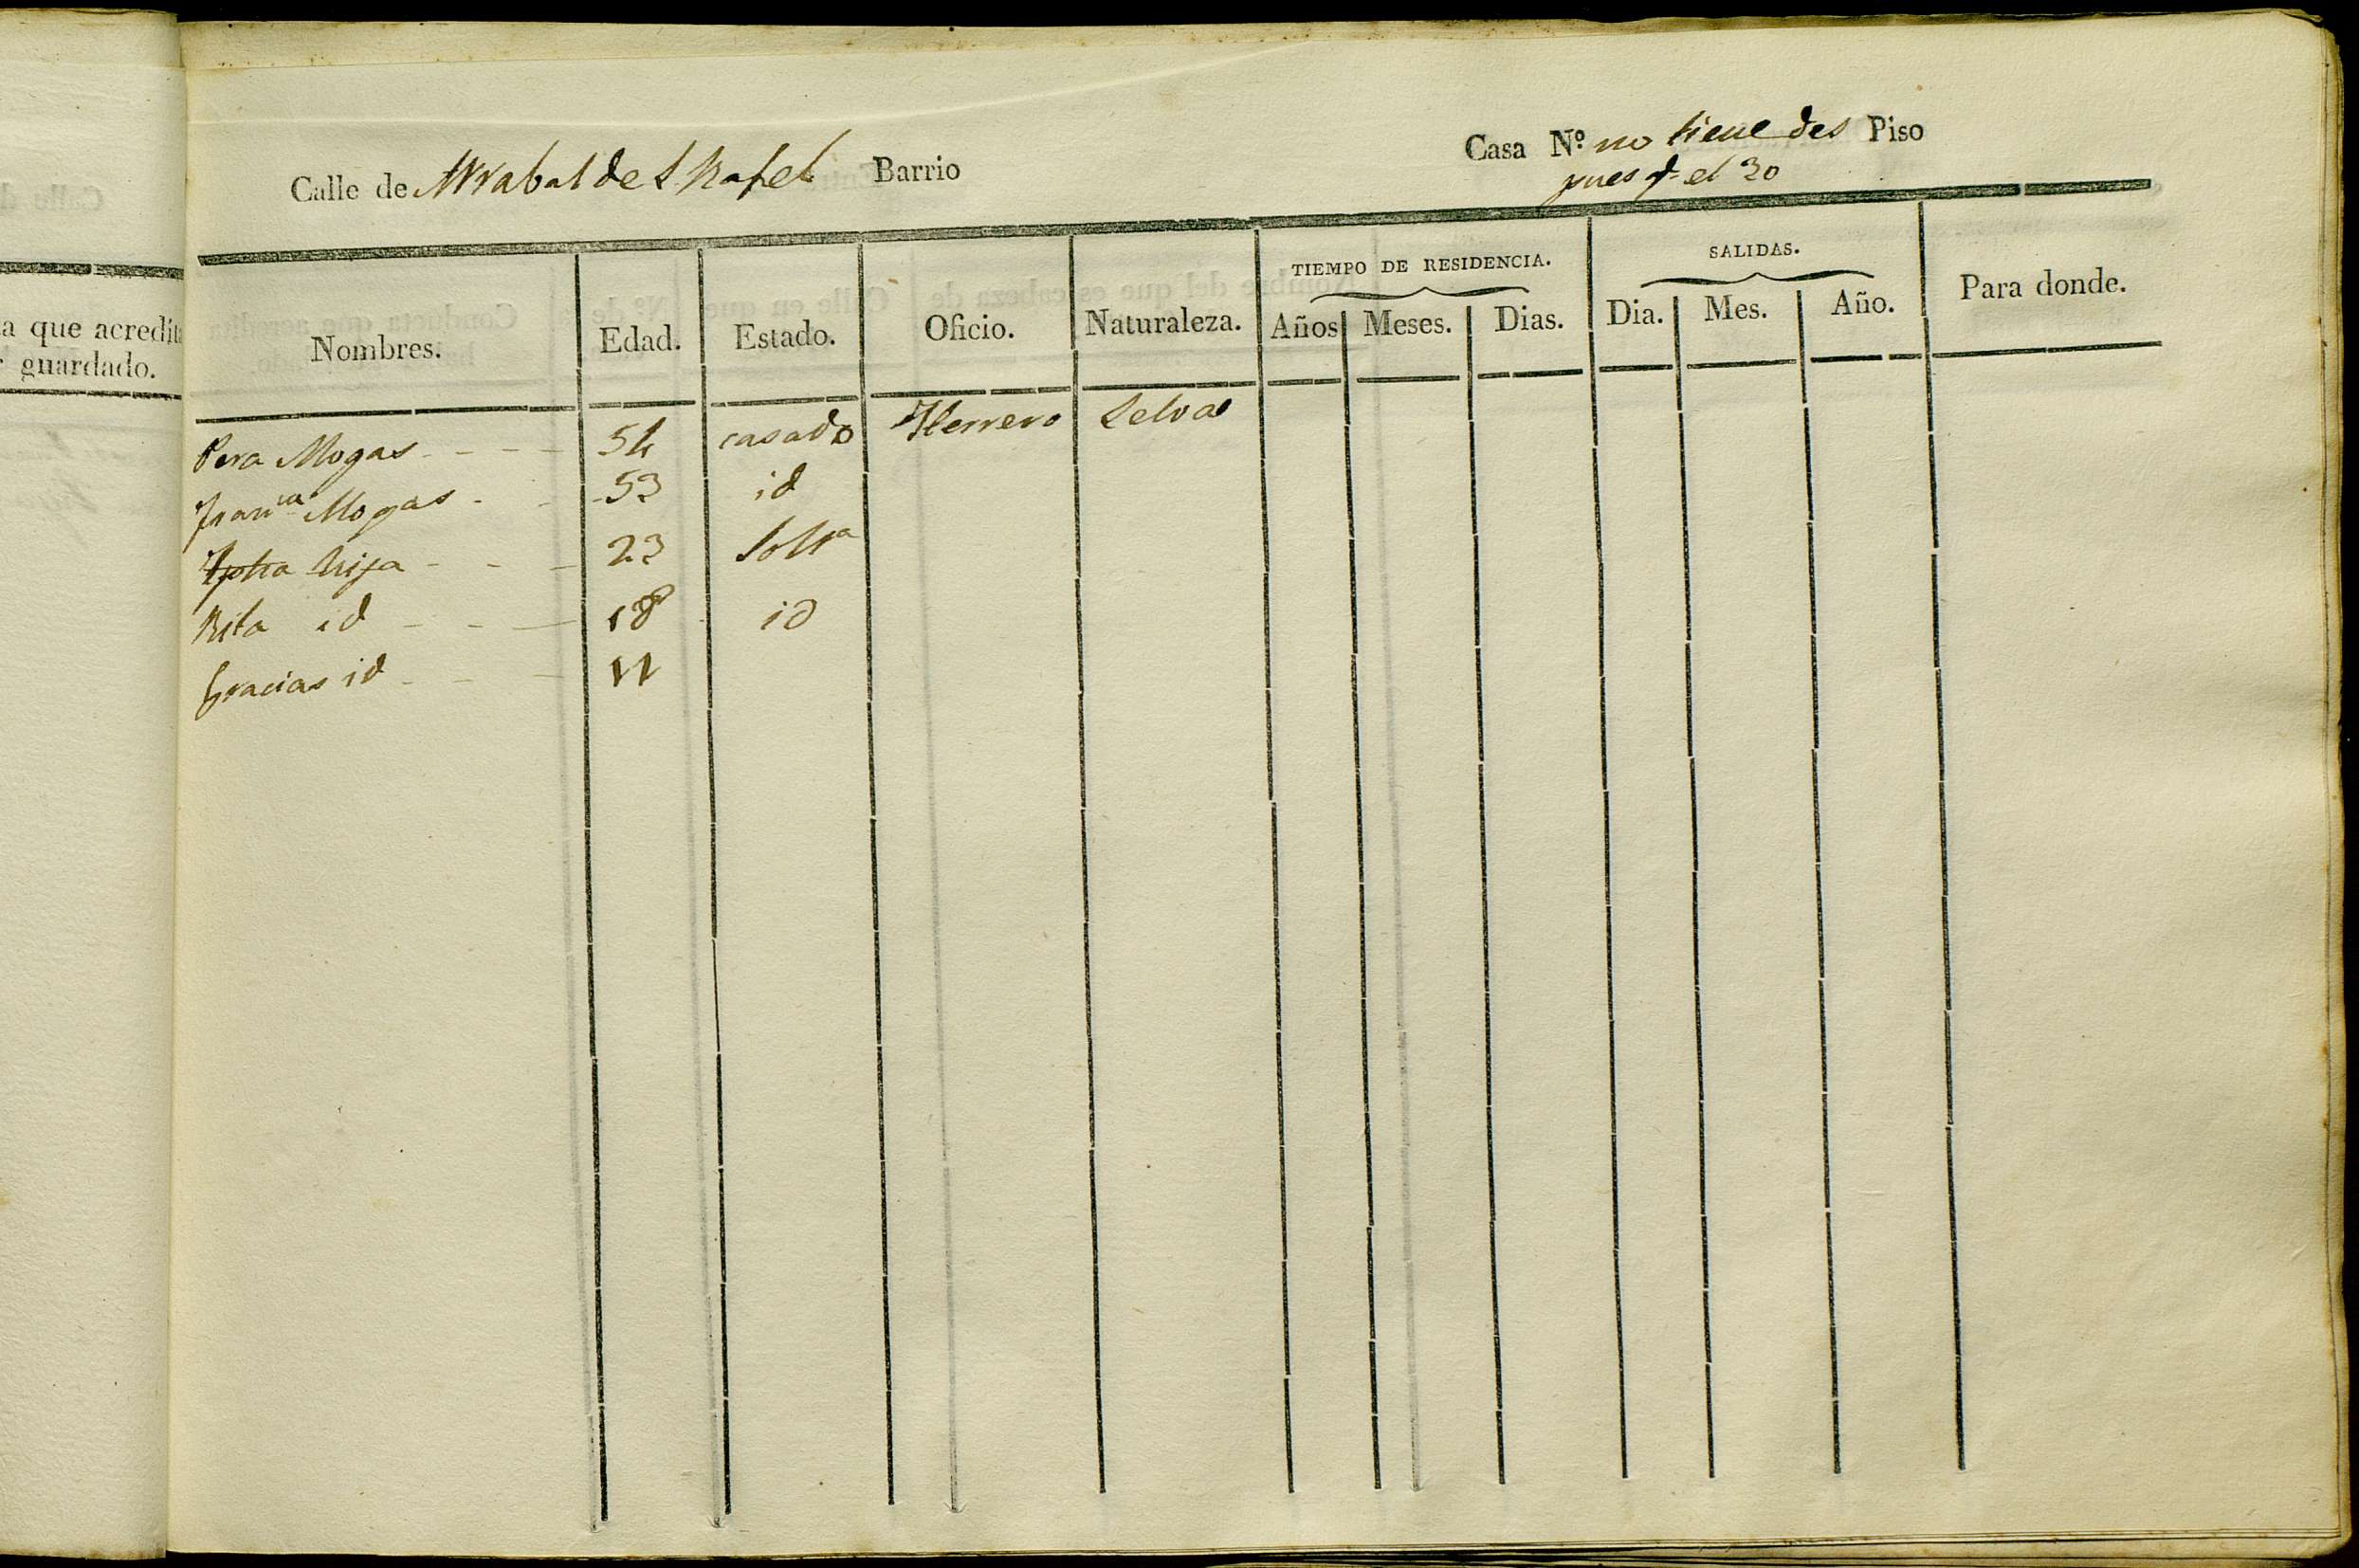 a que acredita
guardado.
Calle de Arrabal de S. Rafel Barrio
Casa Nº no tiene des Piso
pues q.e el 30
Nombres. Edad. Estado. Oficio. Naturaleza. TIEMPO DE RESIDENCIA. SALIDAS. Para donde.
Años Meses. Dias. Dia. Mes. Año.
Pera Mogas 54 casado Herrero Selva
Fran.ca Mogas 53 id
hija 23 Solt.a
Rita id 18 id
Gracias id 11